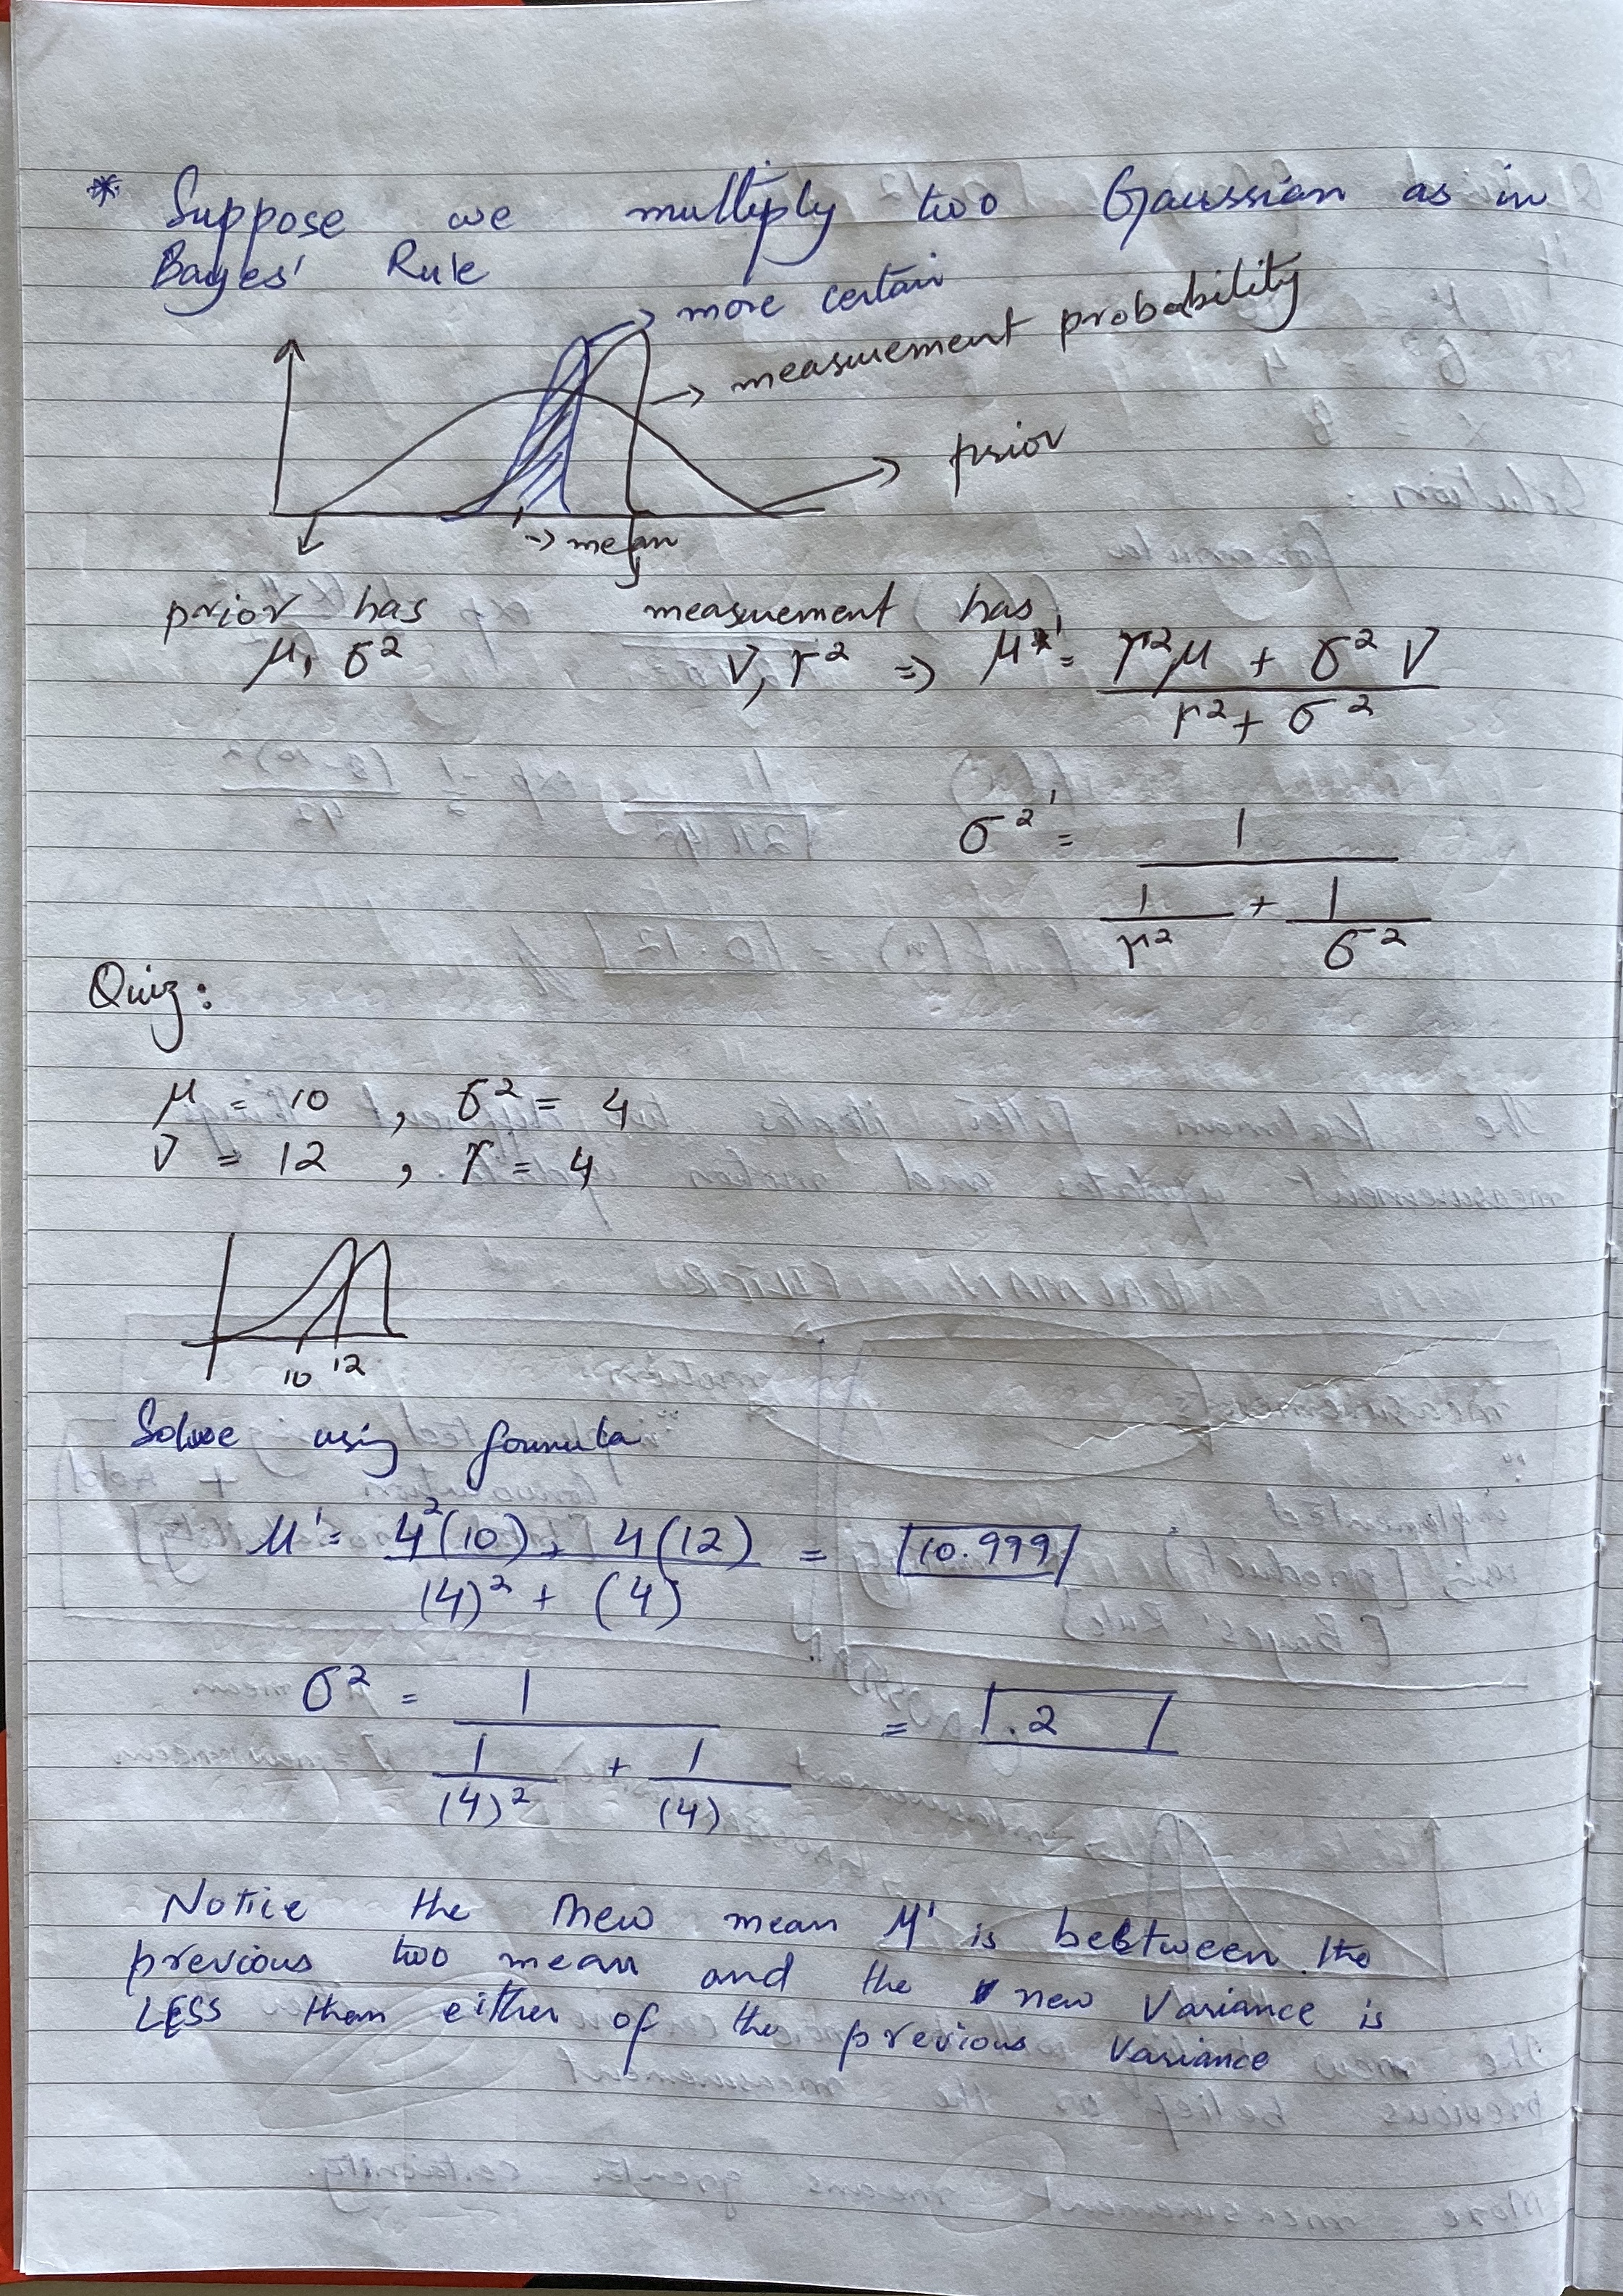 * Suppose we multiply two Gaussian as in
Bayes' Rule
→ more certain
→ measurement probability
→ prior
→ mean
prior has
μ, σ²
measurement has
ν, r² ⇒ μ' = (r²μ + σ²ν) / (r² + σ²)
σ²' = 1 / (1/r² + 1/σ²)
Quiz:
μ = 10 , σ² = 4
ν = 12 , r = 4
10 12
Solve using formula
μ' = (4²(10) + 4(12)) / ((4)² + (4)) = 10.999
σ² = 1 / (1/(4)² + 1/(4)) = .2
Notice the new mean μ' is between the
previous two mean and the new variance is
LESS than either of the previous variance